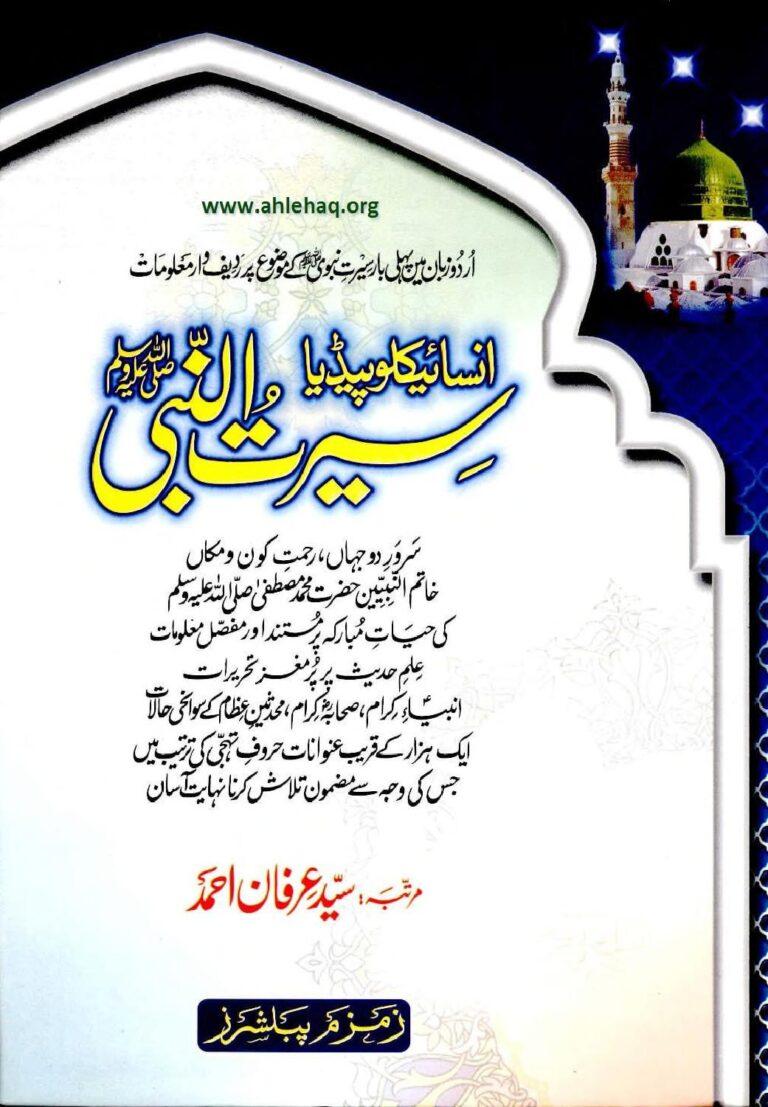 www.ahlehaq.org
اُردو زبان میں پہلی بار سیرتِ نبوی ﷺ کے موضوع پر ردیف وار معلومات
انسائیکلوپیڈیا
سِیرتُ النّبی صلی اللہ علیہ وسلم
سَرورِ دو جہاں، رحمتِ کون و مکاں
خاتم النّبیّین حضرت محمد مصطفیٰ صلی اللہ علیہ وسلم
کی حیاتِ مُبارکہ پر مُستند اور مفصّل معلومات
عِلمِ حدیث پر پُر مغز تحریرات
انبیاءِ کِرام، صحابہ کِرام، محدثینِ عِظام کے سوانحی حالات
ایک ہزار کے قریب عنوانات حروفِ تہجّی کی ترتیب میں
جس کی وجہ سے مضمون تلاش کرنا نہایت آسان
مرتبہ: سیّد عِرفان احمد
زمزم پبلشرز